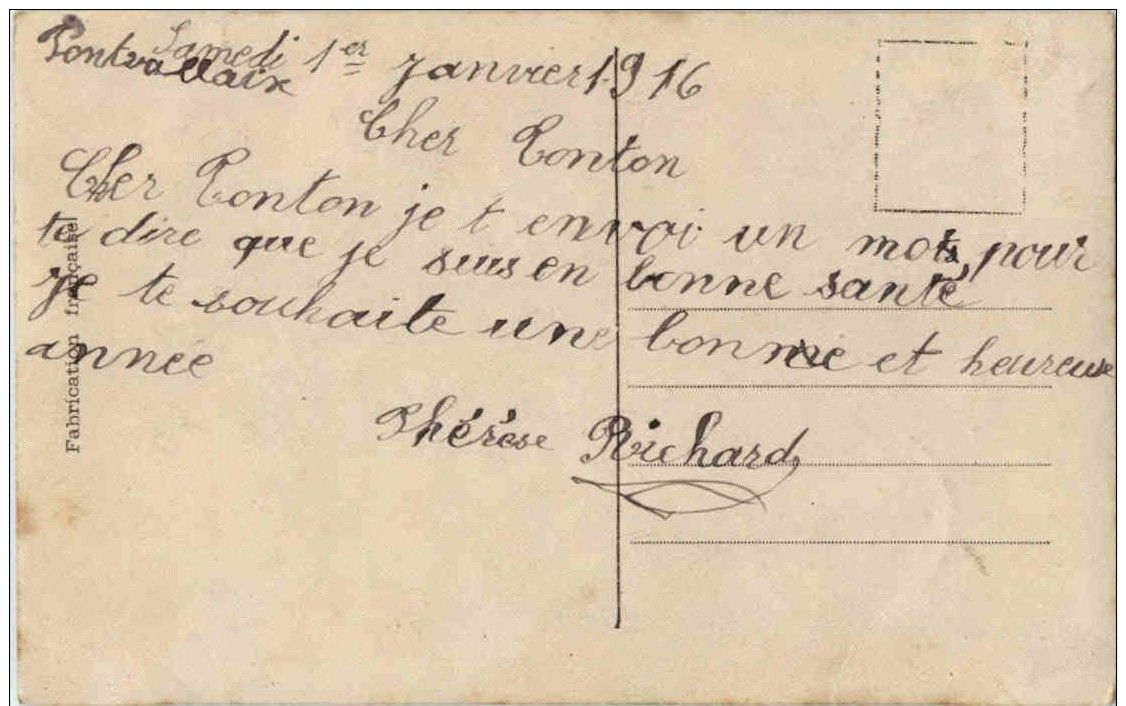 Samedi 1er Janvier 1916
Pontvallaix
Cher Tonton
Cher Tonton je t envoi un mots pour
te dire que je suis en bonne santé
Je te souhaite une bonne et heureuse
année
Thérèse Richard
Fabrication française